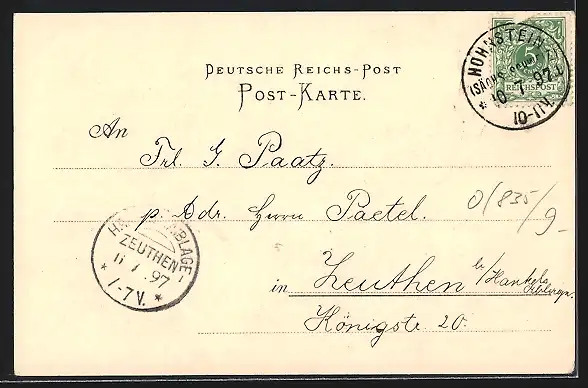 DEUTSCHE REICHS-POST
POST-KARTE.
HOHNSTEIN
(SÄCHS. SCHWEIZ)
* 10 7 97
10-11V.
5
REICHSPOST
An
Frl. G. Paatz.
p. Adr. Herrn Paetel.
0/835/9-
ZEUTHEN
11 7 97
* 7-7V. *
in Zeuthen b/Hankels
Königstr. 20.